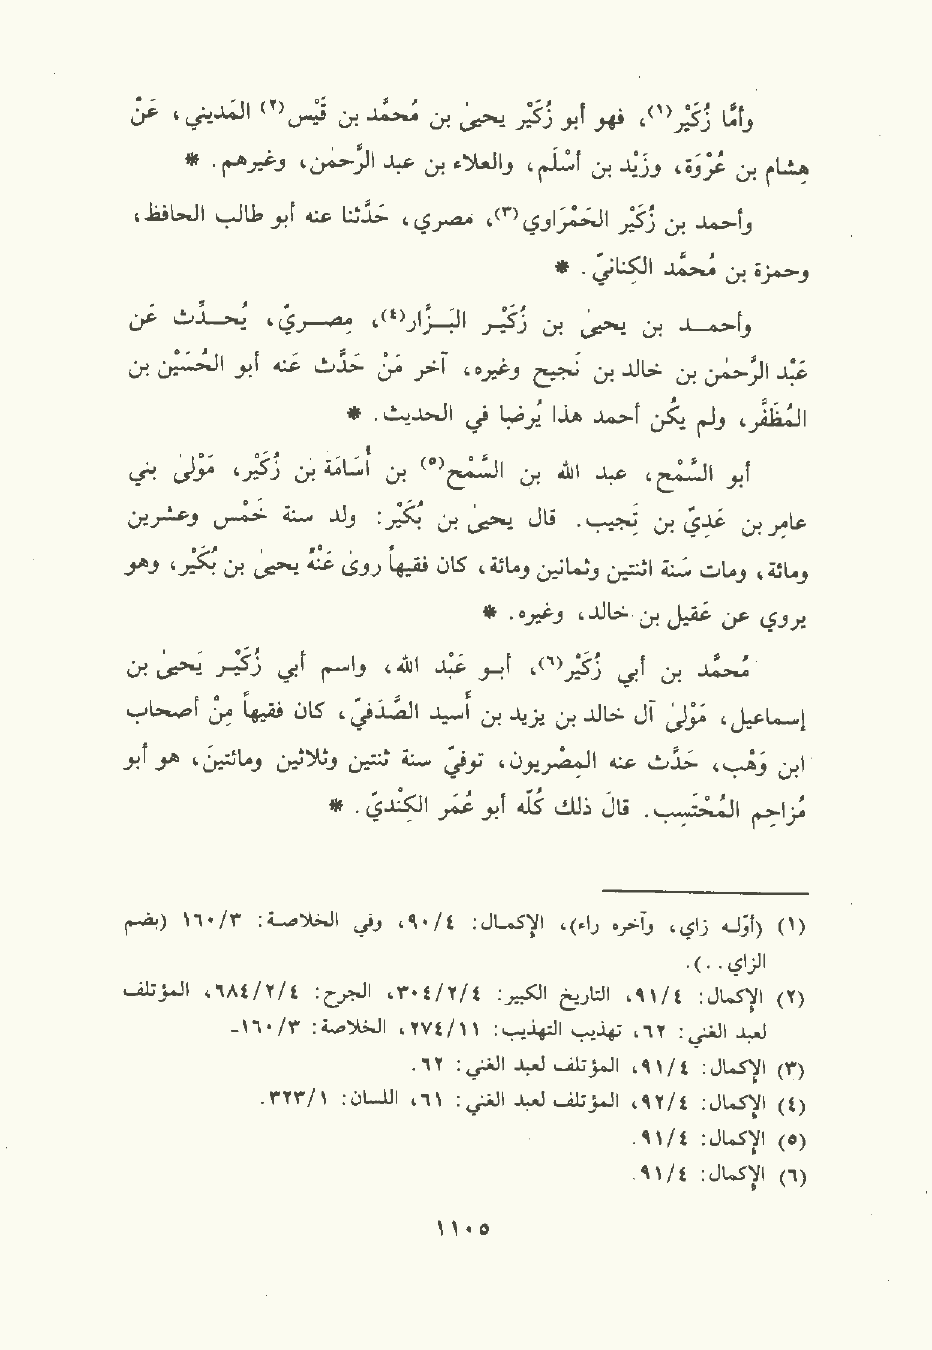 وأمَّا زُكَيْر(١)، فهو أبو زُكَيْر يحيىٰ بن مُحمَّد بن قَيْس(٢) المَديني، عَنْ
هِشام بن عُرْوَة، وزَيْد بن أسْلَم، والعلاء بن عبد الرَّحمٰن، وغيرهم. *
وأحمد بن زُكَيْر الحَمْرَاوي(٣)، مصري، حَدَّثنا عنه أبو طالب الحافظ،
وحمزة بن مُحمَّد الكِنانيّ. *
وأحمـد بن يحيىٰ بن زُكَيْـر البَـزَّار(٤)، مِصـريّ، يُحـدِّث عَن
عَبْد الرَّحمٰن بن خالد بن نَجيح وغيره، آخر مَنْ حَدَّث عَنه أبو الحُسَيْن بن
المُظَفَّر، ولم يكُن أحمد هذا يُرضا في الحديث. *
أبو السَّمْح، عبد الله بن السَّمْح(٥) بن أُسَامَة بن زُكَيْر، مَوْلىٰ بني
عامِر بن عَدِيّ بن تِجيب. قال يحيىٰ بن بُكَيْر: ولد سنة خَمْس وعشرين
ومائة، ومات سَنة اثنتين وثمانين ومائة، كان فقيهاً روىٰ عَنْهُ يحيىٰ بن بُكَيْر، وهو
يروي عن عَقيل بن خالد، وغيره. *
مُحمَّد بن أبي زُكَيْر(٦)، أبـو عَبْد الله، واسم أبي زُكَيْـر يَحيىٰ بن
إسماعيل، مَوْلىٰ آل خالد بن يزيد بن أسيد الصَّدَفيّ، كان فقيهاً مِنْ أصحاب
ابن وَهْب، حَدَّث عنه المِصْريون، توفيّ سنة ثنتين وثلاثين ومائتين، هو أبو
مُزاحِم المُحْتَسِب. قال ذلك كُلّه أبو عُمَر الكِنْديّ. *
(١) (أوّلـه زاي، وآخره راء)، الإكمـال: ٤/ ٩٠، وفي الخلاصـة: ٣/ ١٦٠ (بضم
الزاي. .).
(٢) الإكمال: ٤/ ٩١، التاريخ الكبير: ٤/ ٢/ ٣٠٤، الجرح: ٤/ ٢/ ٦٨٤، المؤتلف
لعبد الغني: ٦٢، تهذيب التهذيب: ١١/ ٢٧٤، الخلاصة: ٣/ ١٦٠-
(٣) الإكمال: ٤/ ٩١، المؤتلف لعبد الغني: ٦٢.
(٤) الإكمال: ٤/ ٩٢، المؤتلف لعبد الغني: ٦١، اللسان: ١/ ٣٢٣.
(٥) الإكمال: ٤/ ٩١.
(٦) الإكمال: ٤/ ٩١.
١١٠٥